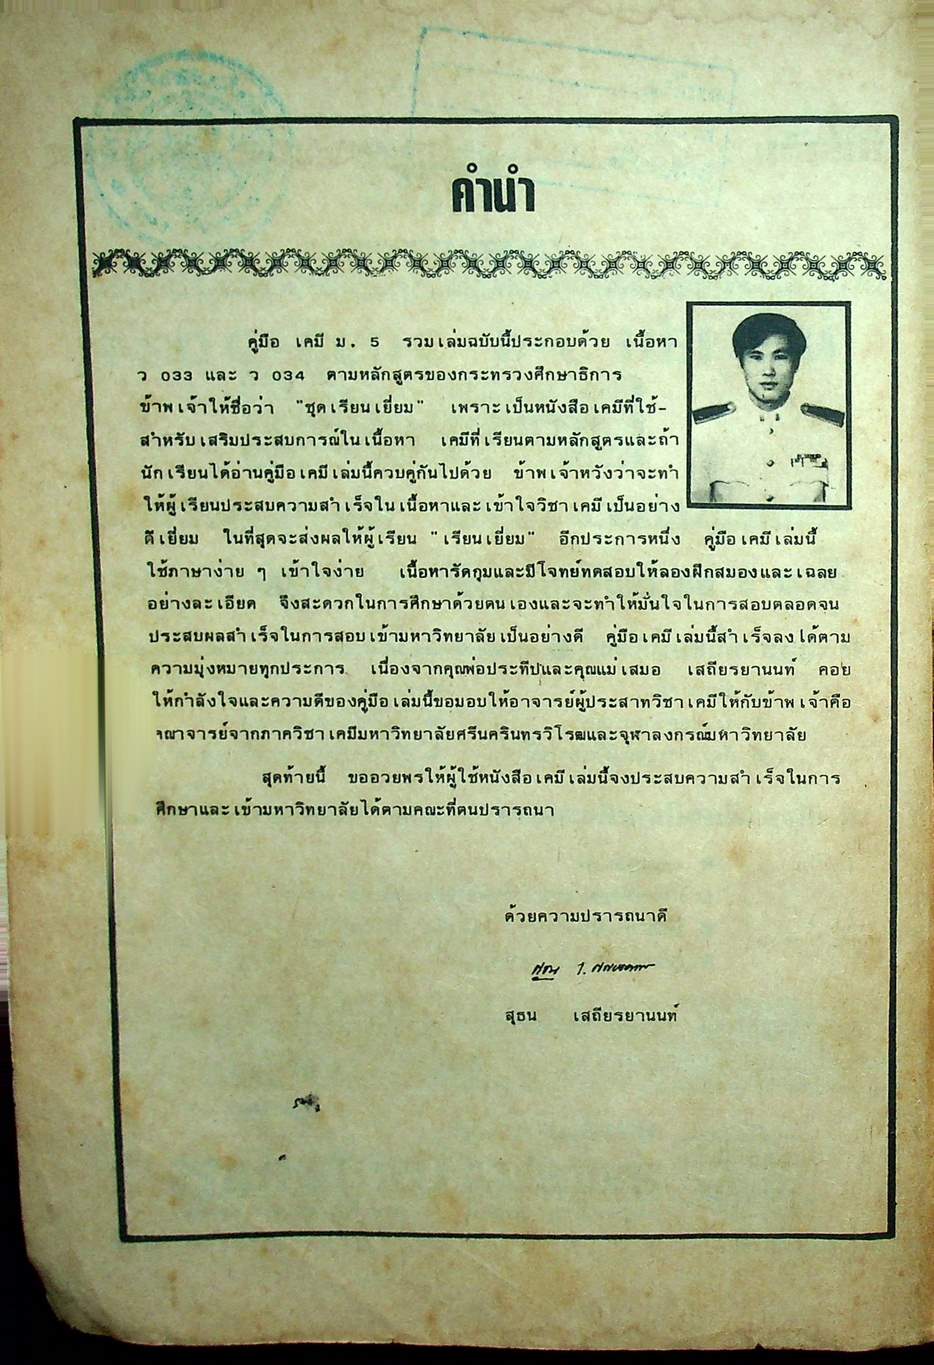 คำนำ
คู่มือ เคมี ม. 5 รวมเล่มฉบับนี้ประกอบด้วย เนื้อหา
ว 033 และ ว 034 ตามหลักสูตรของกระทรวงศึกษาธิการ
ข้าพเจ้าให้ชื่อว่า "ชุดเรียนเยี่ยม" เพราะเป็นหนังสือเคมีที่ใช้-
สำหรับเสริมประสบการณ์ในเนื้อหา เคมีที่เรียนตามหลักสูตรและถ้า
นักเรียนได้อ่านคู่มือเคมีเล่มนี้ควบคู่กันไปด้วย ข้าพเจ้าหวังว่าจะทำ
ให้ผู้เรียนประสบความสำเร็จในเนื้อหาและเข้าใจวิชาเคมีเป็นอย่าง
ดีเยี่ยม ในที่สุดจะส่งผลให้ผู้เรียน "เรียนเยี่ยม" อีกประการหนึ่ง คู่มือเคมีเล่มนี้
ใช้ภาษาง่าย ๆ เข้าใจง่าย เนื้อหารัดกุมและมีโจทย์ทดสอบให้ลองฝึกสมองและเฉลย
อย่างละเอียด จึงสะดวกในการศึกษาด้วยตนเองและจะทำให้มั่นใจในการสอบตลอดจน
ประสบผลสำเร็จในการสอบเข้ามหาวิทยาลัยเป็นอย่างดี คู่มือเคมีเล่มนี้สำเร็จลงได้ตาม
ความมุ่งหมายทุกประการ เนื่องจากคุณพ่อประทีปและคุณแม่เสมอ เสถียรยานนท์ คอย
ให้กำลังใจและความดีของคู่มือเล่มนี้ขอมอบให้อาจารย์ผู้ประสาทวิชาเคมีให้กับข้าพเจ้าคือ
คณาจารย์จากภาควิชาเคมีมหาวิทยาลัยศรีนครินทรวิโรฒและจุฬาลงกรณ์มหาวิทยาลัย
สุดท้ายนี้ ขออวยพรให้ผู้ใช้หนังสือเคมีเล่มนี้จงประสบความสำเร็จในการ
ศึกษาและเข้ามหาวิทยาลัยได้ตามคณะที่ตนปรารถนา
ด้วยความปรารถนาดี
สุธน เสถียรยานนท์